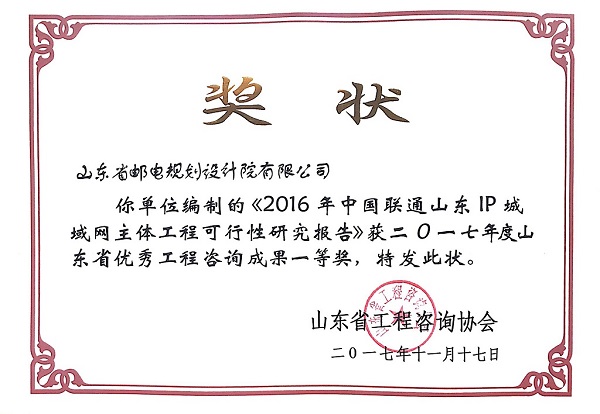 奖 状
山东省邮电规划设计院有限公司
你单位编制的《2016年中国联通山东IP城
域网主体工程可行性研究报告》获二〇一七年度山
东省优秀工程咨询成果一等奖，特发此状。
山东省工程咨询协会
二〇一七年十一月十七日